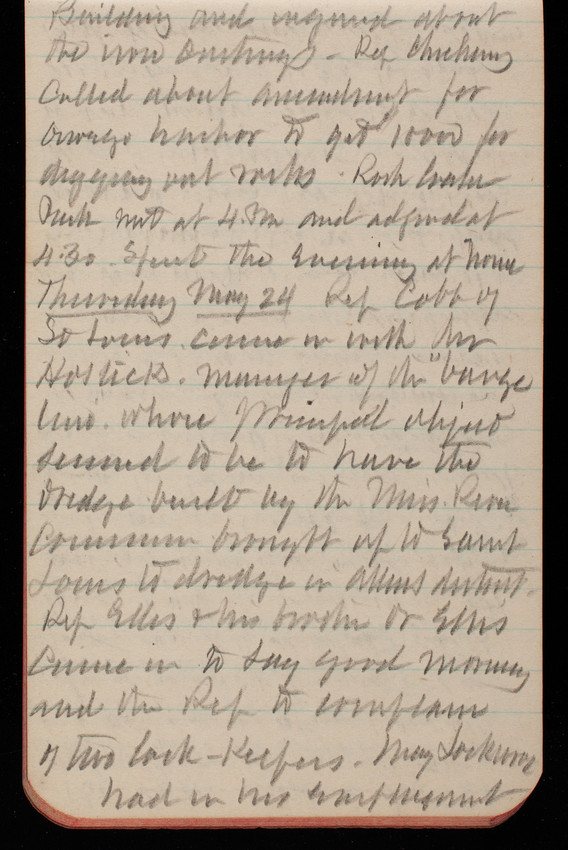 Building and inquired about
the iron castings - Rep Chickering
Called about amendment for
Oswego harbor to get 1000 for
digging out rocks. Rock Creek
Park met at 4 PM and adjrnd at
4:30. Spent the evening at home
Thursday May 24 Rep Cobb of
St Louis came in with Mr
Hostick. manager of the "barge
line". whose principal object
seemed to be to have the
dredge built by the Miss. River
Commission brought up to Saint
Louis to dredge in Allens district.
Rep Ellis & his brother Dr Ellis
came in to say good morning
and the Rep to complain
of two lock-keepers. May Lockwood
had in his employment